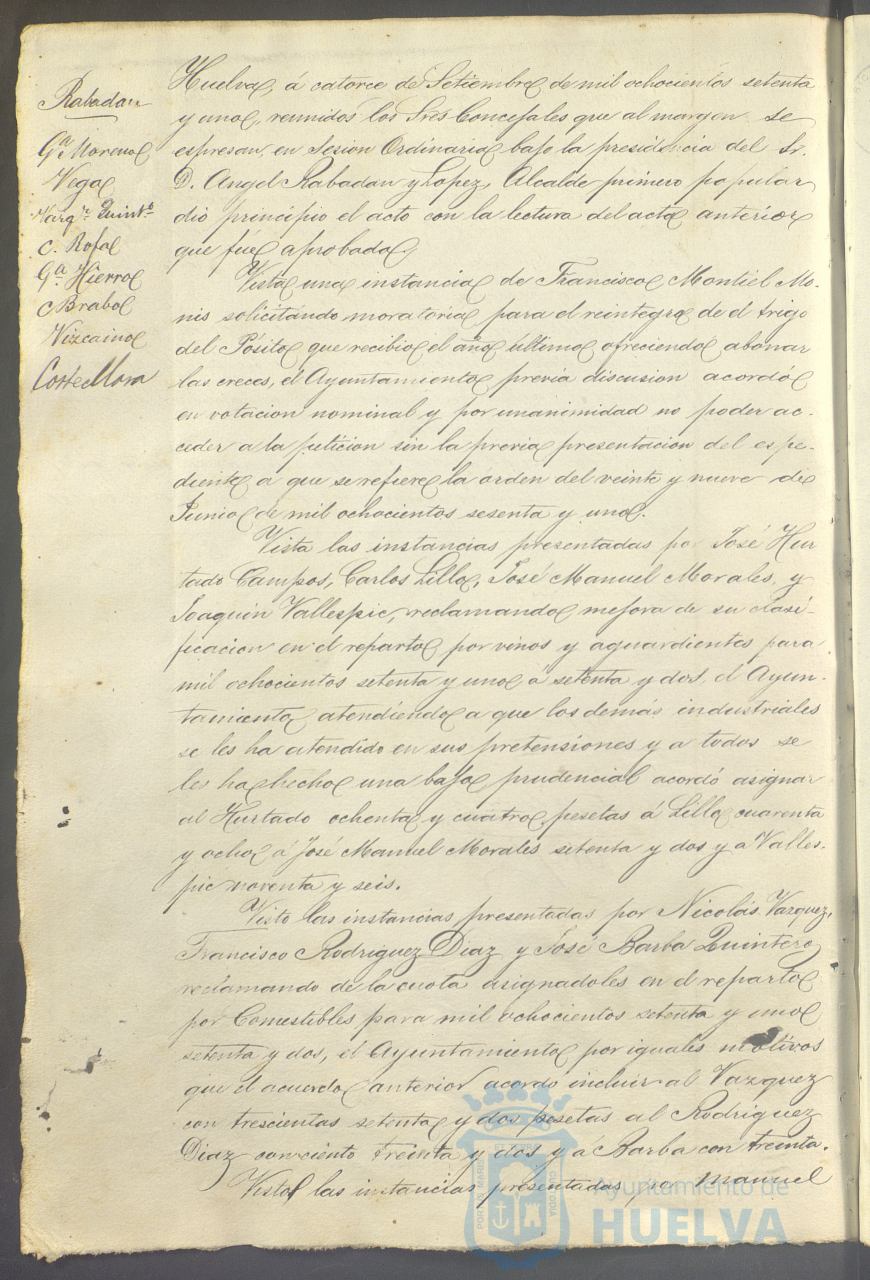 Rabadan
Gª Moreno
Vega
Marqz Quintº
C. Rofa
Gª Hierro
Brabo
Vizcaino
Corte Mora
Huelva, á catorce de Setiembre de mil ochocientos setenta
y uno, reunidos los Sres Concejales que al margen se
espresan, en Sesion Ordinaria bajo la presidencia del Sr.
D. Angel Rabadan y Lopez, Alcalde primero popular
dió principio el acto con la lectura del acta anterior
que fué aprobada.
Vista una instancia de Francisco Montiel Mo-
nis solicitando moratoria para el reintegro de el trigo
del Pósito que recibió el año último ofreciendo abonar
las creces, el Ayuntamiento previa discusion acordó
en votacion nominal y por unanimidad no poder ac-
ceder a la peticion sin la previa presentacion del espe-
diente a que se refiere la orden del veinte y nueve de
Junio de mil ochocientos sesenta y uno.
Vista las instancias presentadas por José Hur
tado Campos, Carlos Lillo, José Manuel Morales, y
Joaquin Vallespic, reclamando mejora de su clasi-
ficacion en el reparto por vinos y aguardientes para
mil ochocientos setenta y uno á setenta y dos, el Ayun-
tamiento atendiendo a que los demás industriales
se les ha atendido en sus pretensiones y a todos se
les ha hecho una baja prudencial acordó asignar
al Hurtado ochenta y cuatro pesetas á Lillo cuarenta
y ocho á José Manuel Morales setenta y dos y á Valles-
pic noventa y seis.
Visto las instancias presentadas por Nicolás Vazquez,
Francisco Rodriguez Diaz y José Barba Quintero
reclamando de la cuota asignadoles en el reparto
por Comestibles para mil ochocientos setenta y uno
setenta y dos, el Ayuntamiento por iguales motivos
que el acuerdo anterior acordó incluir al Vazquez
con trescientas setenta y dos pesetas al Rodriguez
Diaz con ciento treinta y dos y á Barba con treinta.
Visto las instancias presentadas por Manuel
PORTUS MARIS ET TERRAE CUSTODIA
Ayuntamiento de
HUELVA